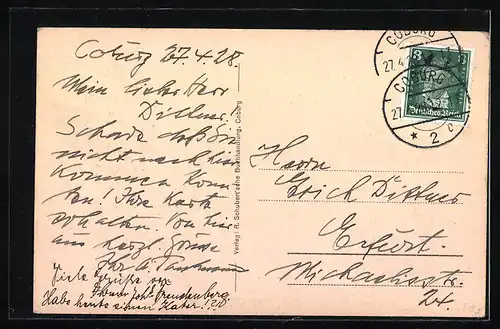 Coburg 27.4.28.
Mein lieber Herr
Dittner.
Schade daß Sie
nicht nach hier
kommen konn-
ten! Ihre Karte
erhalten. Von hier
aus herzl. Grüße
Ihr A.
Viele Grüße von
Freudenberg
Habe heute einen Kater!
Verlag: R. Schubert'sche Buchhandlung, Coburg
COBURG
27.4
COBURG
27.
* 2 c
Deutsches Reich
Herrn
Erich Dittner
Erfurt.
Michaelisstr.